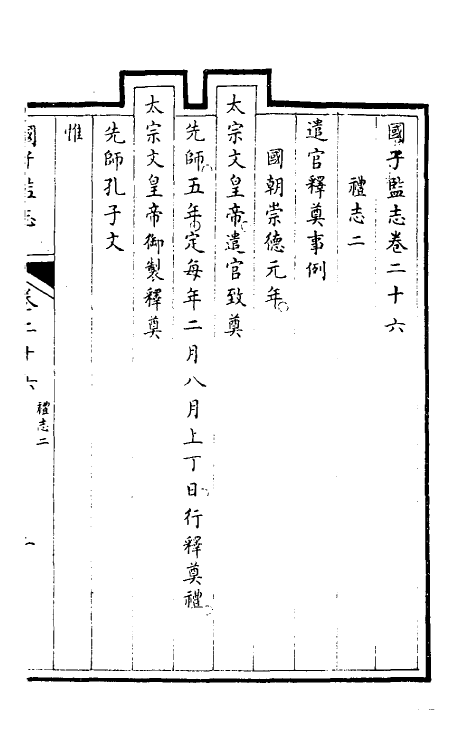 國子監志卷二十六
禮志二
遣官釋奠事例
國朝崇德元年
太宗文皇帝遣官致奠
先師五年定每年二月八月上丁日行釋奠禮
太宗文皇帝御製釋奠
先師孔子文
惟
國子監志 卷二十六 禮志二 一